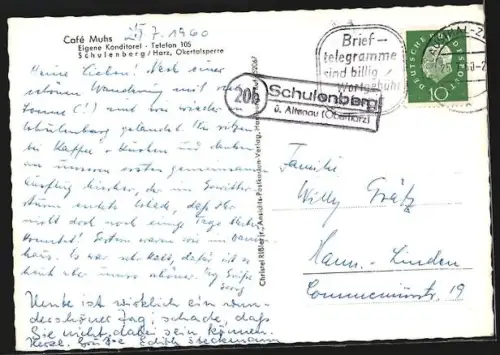 Café Muhs
Eigene Konditorei - Telefon 105
Schulenberg/Harz, Okertalsperre
7.1960
Meine Lieben! Nach einer
schönen Wanderung mit
Sonne (!) sind wir wieder in
Schulenberg gelandet. Wir sitzen
bei Kaffee + Kuchen und denken
an unseren ersten gemeinsamen
Ausflug hierher, der im Gewitter-
sturm endete. Schade, daß Ihr
nicht doch noch einige Tage
konntet! Gestern waren wir im
haus. Es war sehr kalt, dafür ist es
heute aber umso schöner.
Heute ist wirklich ein wun-
derschöner Tag, schade, daß
Sie nicht dabei sein können.
Herzl. Grüße Edith Steckmann
Christel Rißler jr., Ansichts-Postkarten-Verlag,
20b
Schulenberg
ü. Altenau (Oberharz)
Brief-
telegramme
sind billig
Wortgebühr
DEUTSCHE BUNDESPOST
10
Familie
Willy Grätz
Hann.-Linden
19